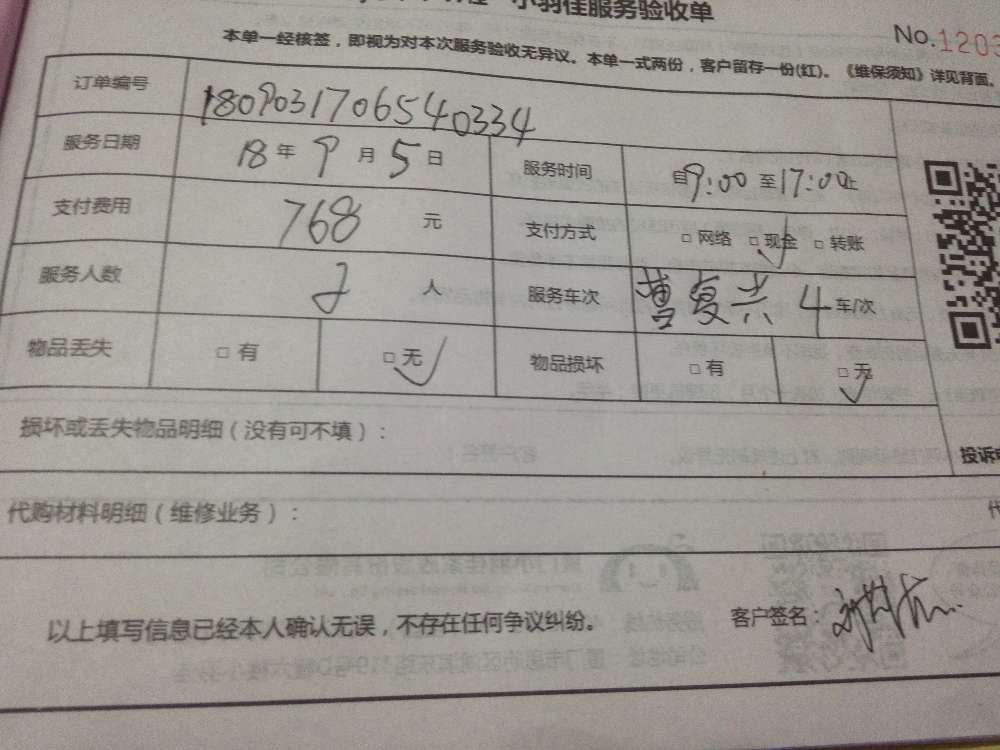 小羽佳服务验收单
No.1203
本单一经核签，即视为对本次服务验收无异议。本单一式两份，客户留存一份(红)。《维保须知》详见背面。
订单编号 180903170654 0334
服务日期 18 年 9 月 5 日 服务时间 自9:00 至17:00止
支付费用 768 元 支付方式 □ 网络 □ 现金 □ 转账
服务人数 2 人 服务车次 曹复兴 4 车/次
物品丢失 □ 有 □ 无 物品损坏 □ 有 □ 无
损坏或丢失物品明细（没有可不填）：
投诉
代购材料明细（维修业务）：
代
以上填写信息已经本人确认无误，不存在任何争议纠纷。 客户签名：